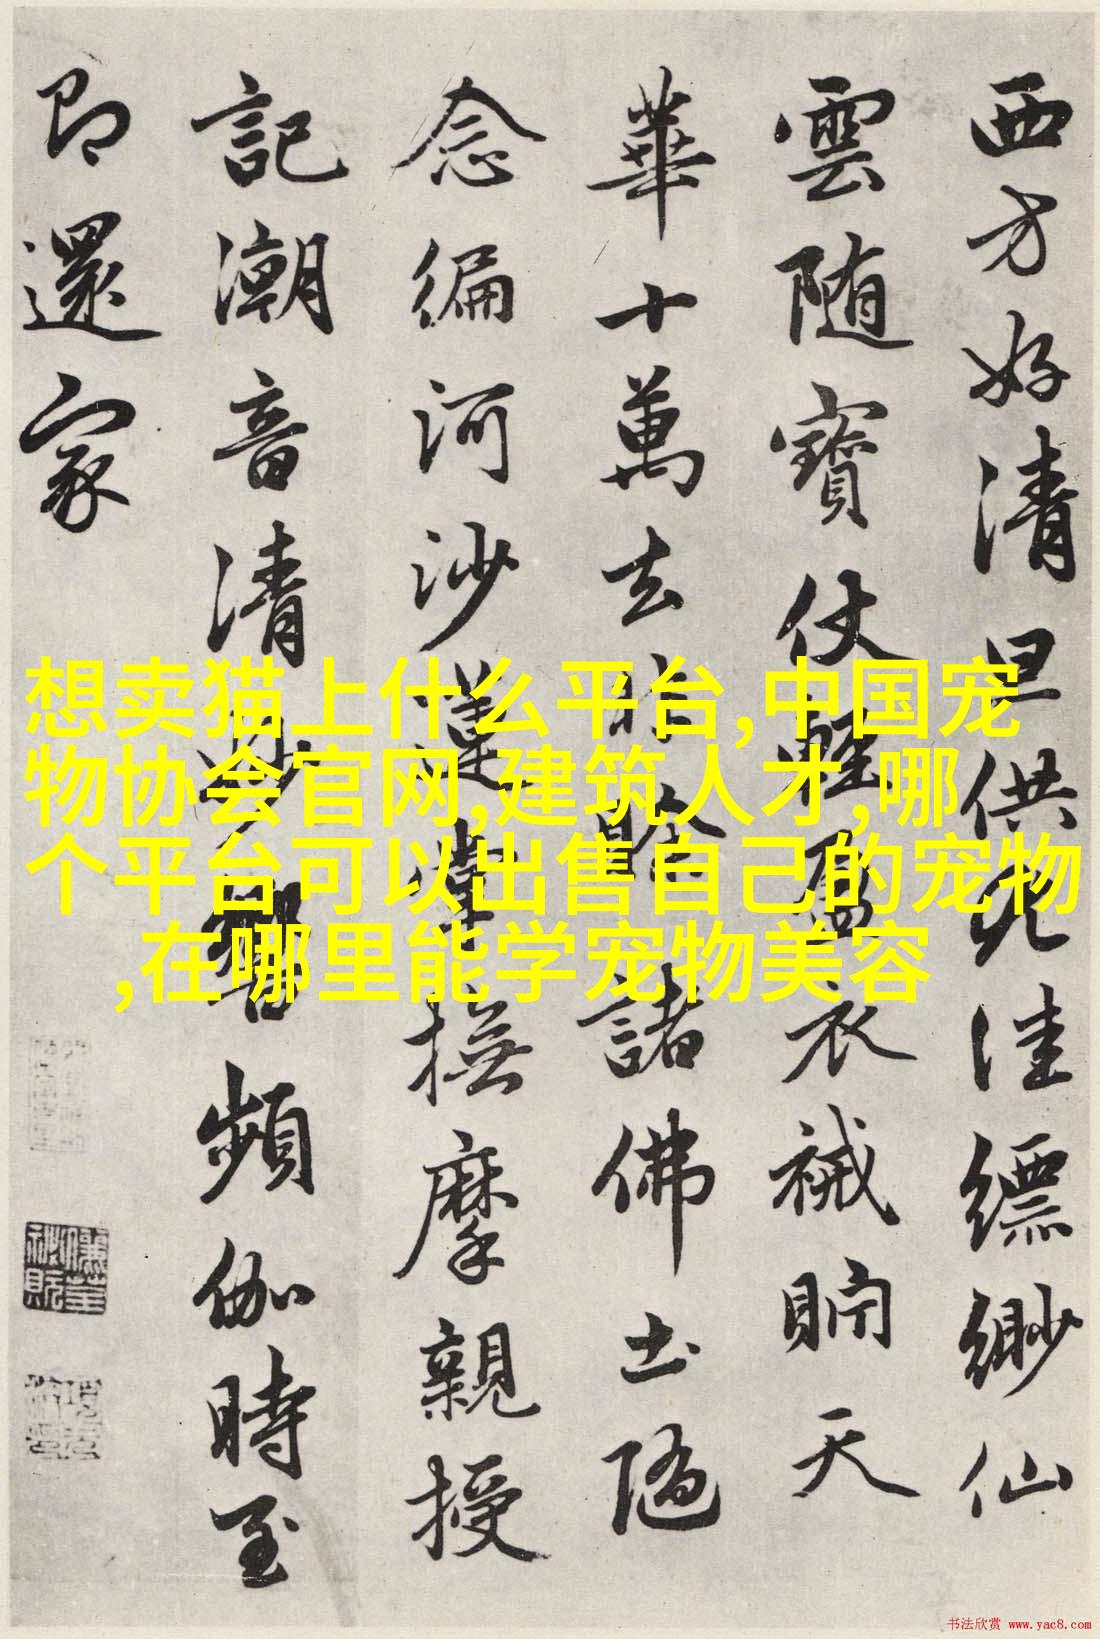 西方好清旦供九洼缥缈仙
雲随寳仗輕盈衣裓貯天
華十萬去時賒諸佛土隨
念徧河沙蓮掌撫摩親授
記潮音清妙響頻伽時至
即還家
想卖猫上什么平台,中国宠
物协会官网,建筑人才,哪
个平台可以出售自己的宠物
,在哪里能学宠物美容
书法欣赏 www.yac8.com